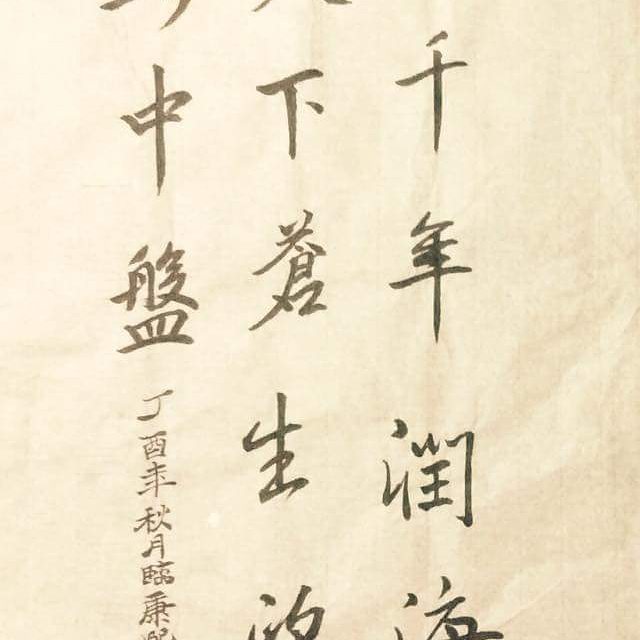 千年潤
下蒼生
中盤
丁酉年秋月臨康熙